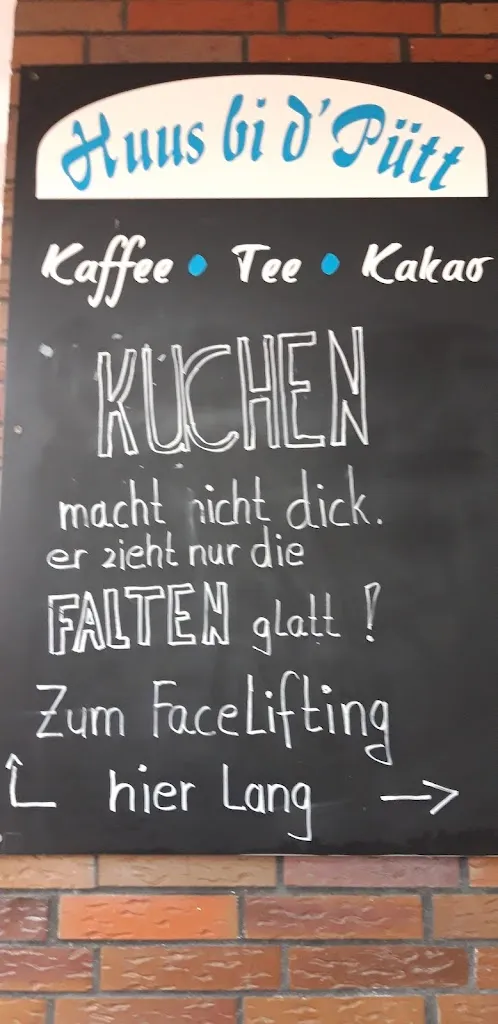 Huus bi d' Pütt
Kaffee • Tee • Kakao
KUCHEN
macht nicht dick.
er zieht nur die
FALTEN glatt !
Zum FaceLifting
hier Lang →